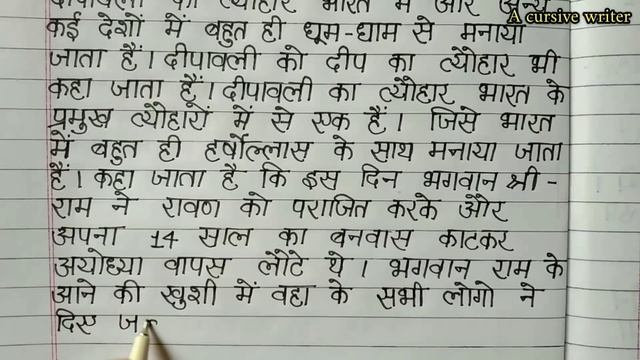 A cursive writer
दीपावली का त्यौहार भारत में और अन्य
कई देशों में बहुत ही धूम-धाम से मनाया
जाता हैं। दीपावली को दीप का त्यौहार भी
कहा जाता हैं। दीपावली का त्यौहार भारत के
प्रमुख त्यौहारों में से एक हैं। जिसे भारत
में बहुत ही हर्षोल्लास के साथ मनाया जाता
हैं। कहा जाता है कि इस दिन भगवान श्री-
राम ने रावण को पराजित करके और
अपना 14 साल का बनवास काटकर
अयोध्या वापस लौटे थे। भगवान राम के
आने की खुशी में वहा के सभी लोगो ने
दिए ज